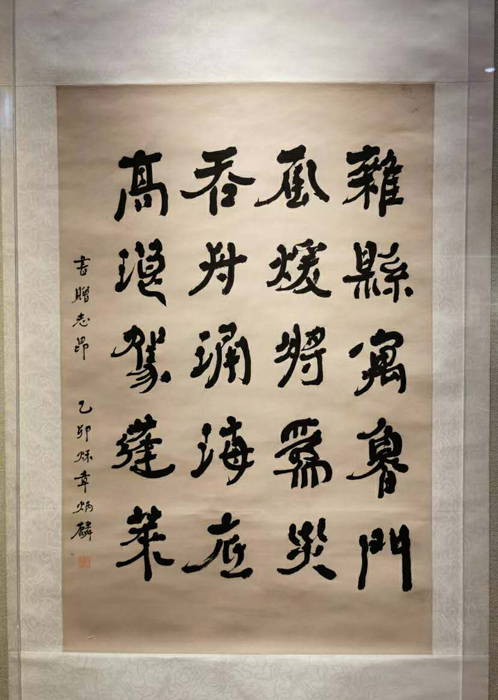 雜縣寓魯門
風煖將爲災
吞舟涌海底
高浪駕蓬萊
書贈志昂 乙卯秋章炳麟